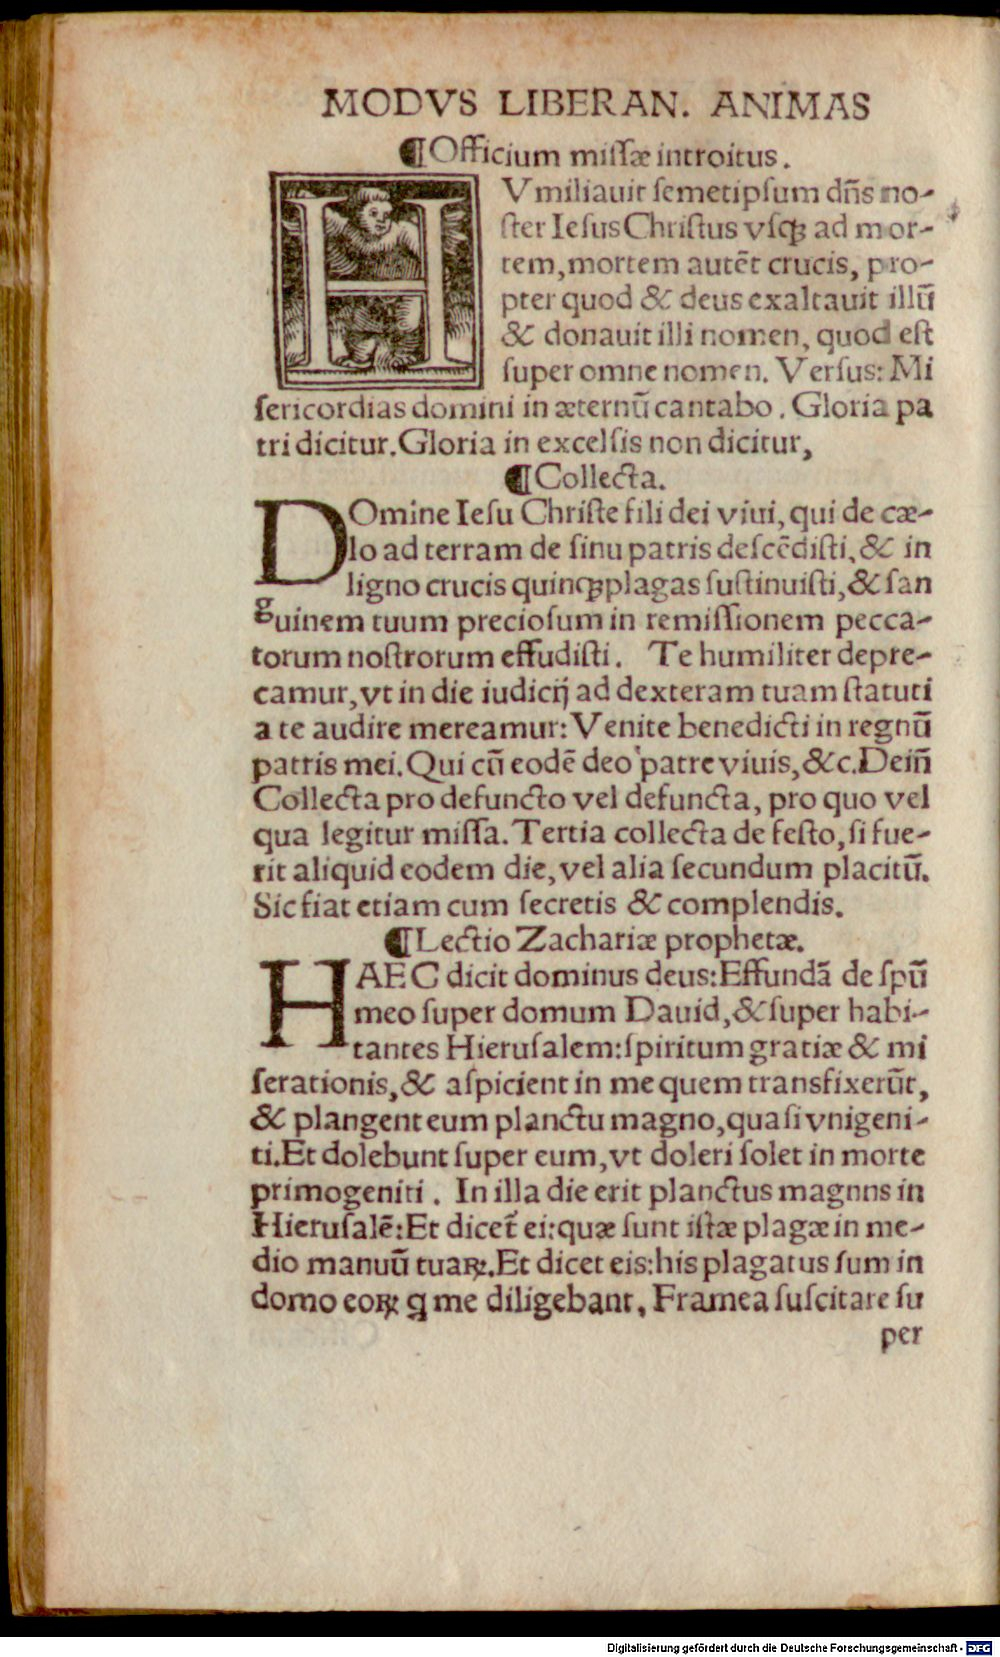 MODVS LIBERAN. ANIMAS
¶Officium miſſæ introitus.
HVmiliauit ſemetipſum dn̄s no-
ſter IeſusChriſtus vſqꝫ ad mor-
tem,mortem autēt crucis, pro-
pter quod & deus exaltauit illū
& donauit illi nomen, quod eſt
ſuper omne nomen. Verſus: Mi
ſericordias domini in æternū cantabo. Gloria pa
tri dicitur.Gloria in excelſis non dicitur,
¶Collecta.
DOmine Ieſu Chriſte fili dei viui, qui de cæ-
lo ad terram de ſinu patris deſcēdiſti, & in
ligno crucis quinqꝫ plagas ſuſtinuiſti, & ſan
guinem tuum precioſum in remiſſionem pecca-
torum noſtrorum effudiſti. Te humiliter depre-
camur, vt in die iudicij ad dexteram tuam ſtatuti
a te audire mereamur: Venite benedicti in regnū
patris mei. Qui cū eodē deo patre viuis, &c. Dein̄
Collecta pro defuncto vel defuncta, pro quo vel
qua legitur miſſa. Tertia collecta de feſto, ſi fue-
rit aliquid eodem die, vel alia ſecundum placitū.
Sic fiat etiam cum ſecretis & complendis.
¶Lectio Zachariæ prophetæ.
HAEC dicit dominus deus: Effundā de ſpū
meo ſuper domum Dauid, & ſuper habi-
tantes Hieruſalem: ſpiritum gratiæ & mi
ſerationis, & aſpicient in me quem transfixerūt,
& plangent eum planctu magno, quaſi vnigeni-
ti. Et dolebunt ſuper eum, vt doleri ſolet in morte
primogeniti. In illa die erit planctus magnns in
Hieruſalē: Et dicet̄ ei: quæ ſunt iſtæ plagæ in me-
dio manuū tuaꝝ. Et dicet eis: his plagatus ſum in
domo eoꝝ q me diligebant, Framea ſuſcitare ſu
per
Digitalisierung gefördert durch die Deutsche Forschungsgemeinschaft - DFG